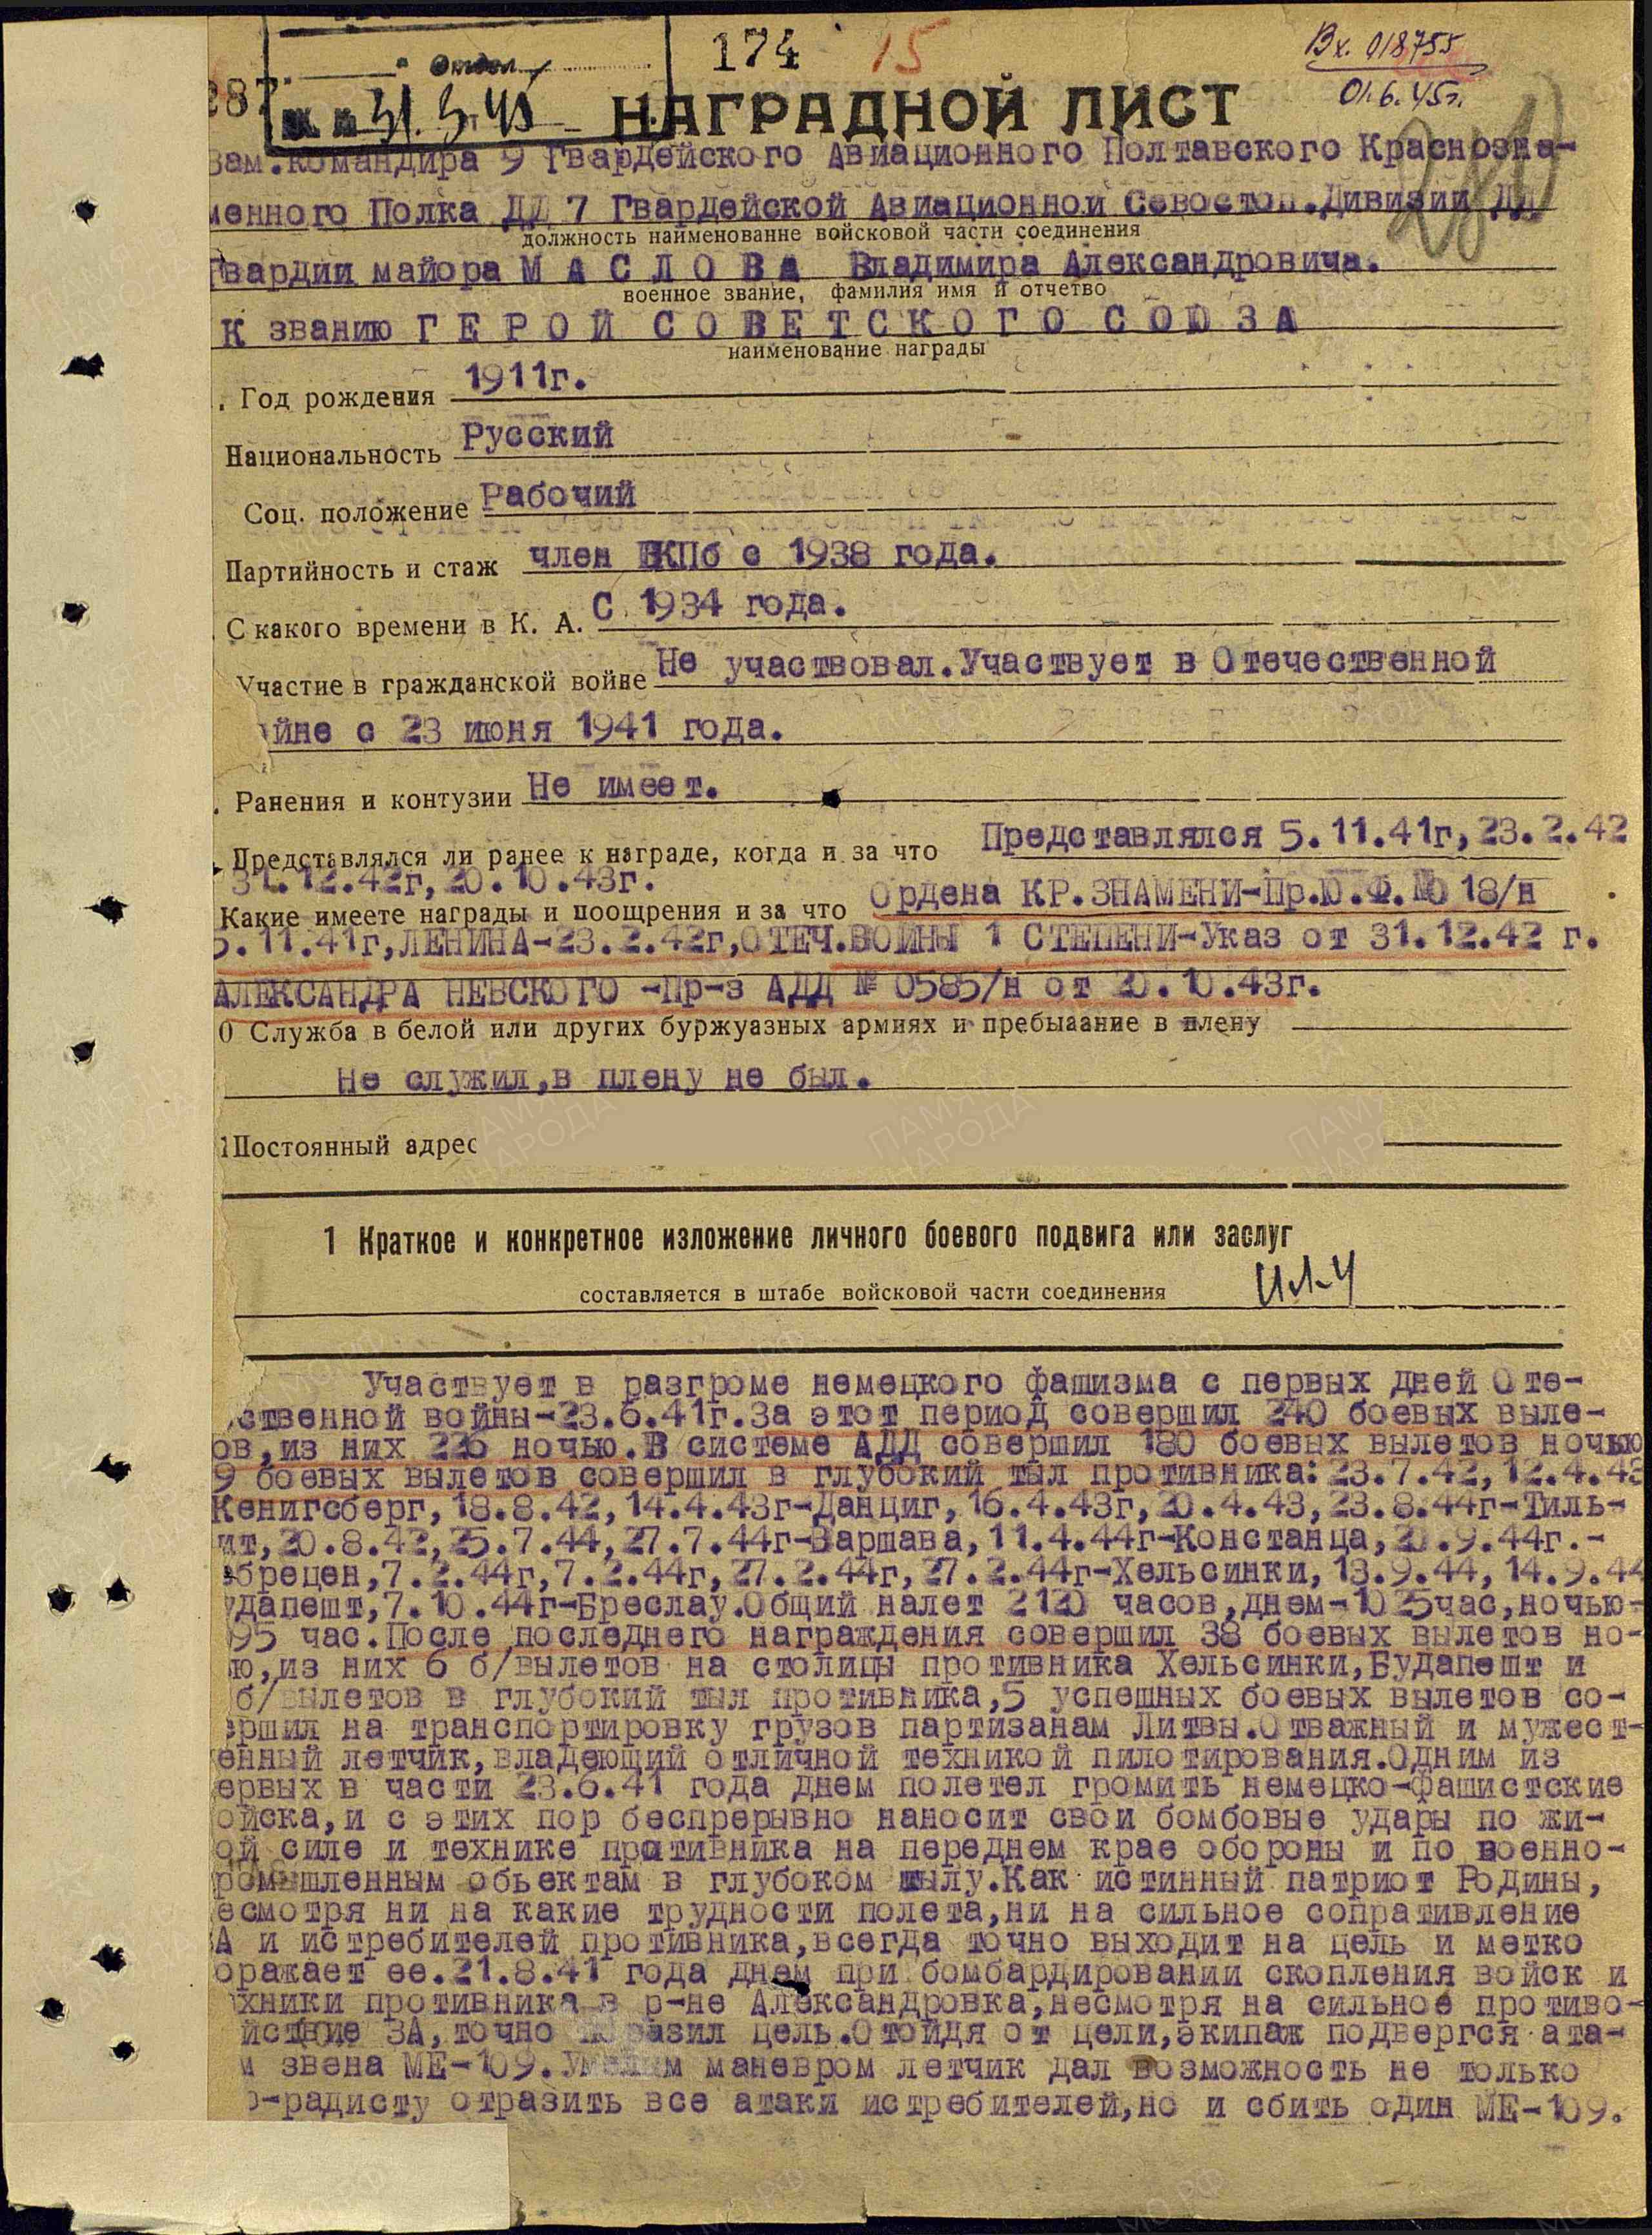 174 15
Вх. 018755
01.6.45г.
287
Отдел
31.5.45
НАГРАДНОЙ ЛИСТ
Зам.командира 9 Гвардейского Авиационного Полтавского Краснозна-
менного Полка ДД 7 Гвардейской Авиационной Севостоп.Дивизии ДД
должность наименование войсковой части соединения
Гвардии майора М А С Л О В А Владимира Александровича.
военное звание, фамилия имя и отчетво
К званию Г Е Р О Й С О В Е Т С К О Г О С О Ю З А
наименование награды
. Год рождения 1911г.
Национальность Русский
Соц. положение Рабочий
Партийность и стаж член ВКПб с 1938 года.
С какого времени в К. А. С 1934 года.
Участие в гражданской войне Не участвовал.Участвует в Отечественной
йне с 23 июня 1941 года.
. Ранения и контузии Не имеет.
Представлялся ли ранее к награде, когда и за что Представлялся 5.11.41г,23.2.42
31.12.42г,20.10.43г.
Какие имеете награды и поощрения и за что Ордена КР.ЗНАМЕНИ-Пр.Ю.Ф.№ 18/н
5.11.41г,ЛЕНИНА-23.2.42г,ОТЕЧ.ВОЙНЫ 1 СТЕПЕНИ-Указ от 31.12.42 г.
АЛЕКСАНДРА НЕВСКОГО -Пр-з АДД № 0585/н от 20.10.43г.
0 Служба в белой или других буржуазных армиях и пребыаание в плену
Не служил,в плену не был.
1 Постоянный адрес
1 Краткое и конкретное изложение личного боевого подвига или заслуг
составляется в штабе войсковой части соединения
Ил-4
Участвует в разгроме немецкого фашизма с первых дней Оте-
ственной войны-23.6.41г.За этот период совершил 240 боевых выле-
ов,из них 226 ночью.В системе АДД совершил 180 боевых вылетов ночью
9 боевых вылетов совершил в глубокий тыл противника:23.7.42,12.4.43
Кенигсберг,18.8.42,14.4.43г-Данциг,16.4.43г,20.4.43,23.8.44г-Тиль-
ит,20.8.42,25.7.44,27.7.44г-Варшава,11.4.44г-Констанца,20.9.44г.-
ебрецен,7.2.44г,7.2.44г,27.2.44г,27.2.44г-Хельсинки,13.9.44,14.9.44
удапешт,7.10.44г-Бреслау.Общий налет 2120 часов,днем-1025час,ночью-
95 час.После последнего награждения совершил 38 боевых вылетов но-
ю,из них 6 б/вылетов на столицы противника Хельсинки,Будапешт и
б/вылетов в глубокий тыл противника,5 успешных боевых вылетов со-
ершил на транспортировку грузов партизанам Литвы.Отважный и мужест-
енный летчик,владеющий отличной техникой пилотирования.Одним из
ервых в части 23.6.41 года днем полетел громить немецко-фашистские
ойска,и с этих пор беспрерывно наносит свои бомбовые удары по жи-
ой силе и технике противника на переднем крае обороны и по военно-
ромышленным обьектам в глубоком тылу.Как истинный патриот Родины,
есмотря ни на какие трудности полета,ни на сильное сопративление
А и истребителей противника,всегда точно выходит на цель и метко
оражает ее.21.8.41 года днем при бомбардировании скопления войск и
хники противника в р-не Александровка,несмотря на сильное противо-
йствие ЗА,точно поразил цель.Отойдя от цели,экипаж подвергся ата-
м звена МЕ-109.Умелым маневром летчик дал возможность не только
-радисту отразить все атаки истребителей,но и сбить один МЕ-109.